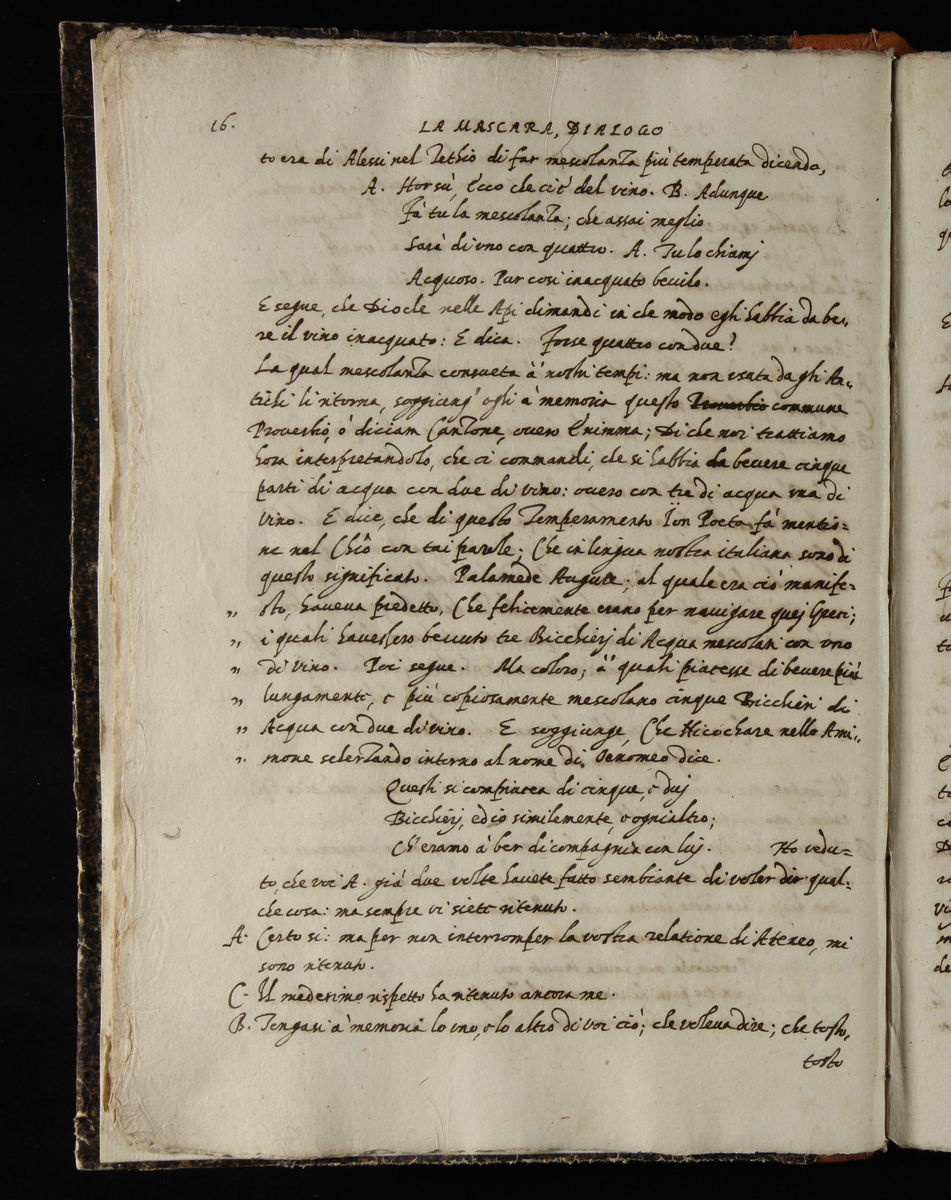 16.
LA MASCARA, DIALOGO
to era di Alessi nel Tethio di far mescolanza più temperata dicendo,
A. Horsù, Ecco che ci è del vino. B. Adunque
Fà tu la mescolanza; che assai meglio
Sarà di uno con quattro. A. Tu lo chiamj
Acquoso. Pur così inacquato bevilo.
E segue, che Diocle nelle Api dimandi in che modo egli habbia da be„
re il vino inacquato: E dica. Forse quattro con due?
La qual mescolanza consueta à nostri tempi: ma non usata da gli An„
tichi li ritorna, soggiung' egli à memoria questo Proverbio commune
Proverbio, ò diciam Canzone, overo Enimma; Di che noi trattiamo
hora interpretandolo, che ci commandi, che si habbia da bevere cinque
parti di acqua con due di vino: overo con tre di acqua una di
vino. E dice, che di questo Temperamento Ion Poeta fà mentio=
ne nel Chio con tai parole; Che in lingua nostra italiana sono di
questo significato. Palamede Augure; al quale era ciò manife=
„ sto, haveva predetto, Che felicemente erano per navigare quej Greci;
„ i quali havessero bevuto tre Bicchierj di Acqua mescolati con uno
„ di vino. Poi segue. Ma coloro; à quali piacesse di bevere più
„ lungamente, e più copiosamente mescolano cinque Bicchieri di
„ Acqua con due di vino. E soggiunge, Che Nicochare nello Ami„
„ mone scherzando intorno al nome di Oenomeo dice.
Questi si compiacea di cinque, e duj
Bicchierj, ed io similemente, e ogni altro;
Ch' eramo à ber di compagnia con luj. Ho vedu=
to, che voi A. già due volte havete fatto sembiante di voler dir qual=
che cosa: ma sempre vi siete ritenuto.
A. Certo si: ma per non interromper la vostra relatione di Ateneo, mi
sono ritenuto.
C. Il medesimo rispetto ha ritenuto ancora me.
B. Tengasi à memoria lo uno, e lo altro di voi ciò; che voleva dire; che tosto,
tosto